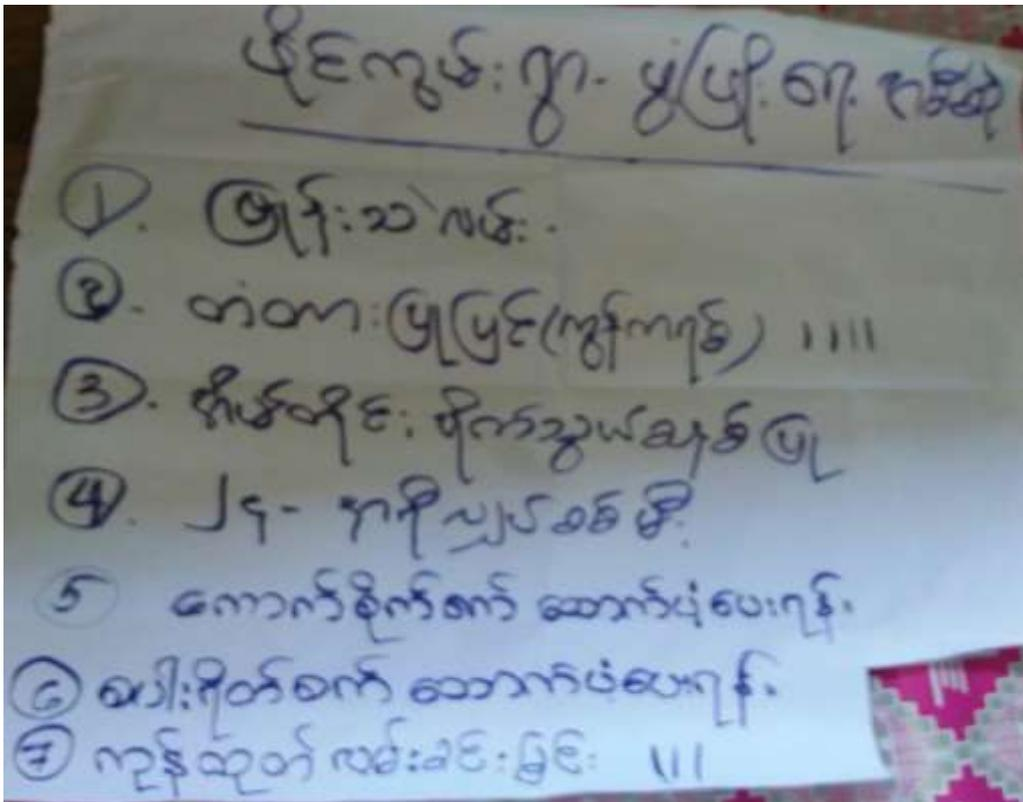 ဖိုင်ကွမ်းရွာ- ဖွံ့ဖြိုးရေး
①. မြုန်းသဲလမ်း.
②. တံတားပြုပြင်(ကွန်ကရစ်) ||||
③. အိမ်တိုင်း စိုက်သွယ်ချစ်ပြု
④. ၂၄- နာရီလျှပ်စစ်မီး
5 ကောက်စိုက်စက် ထောက်ပံ့ပေးရန်.
⑥ စပါးရိတ်စက် ထောက်ပံ့ပေးရန်.
⑦ ကုန်ထုတ်လမ်းခင်းခြင်း |||